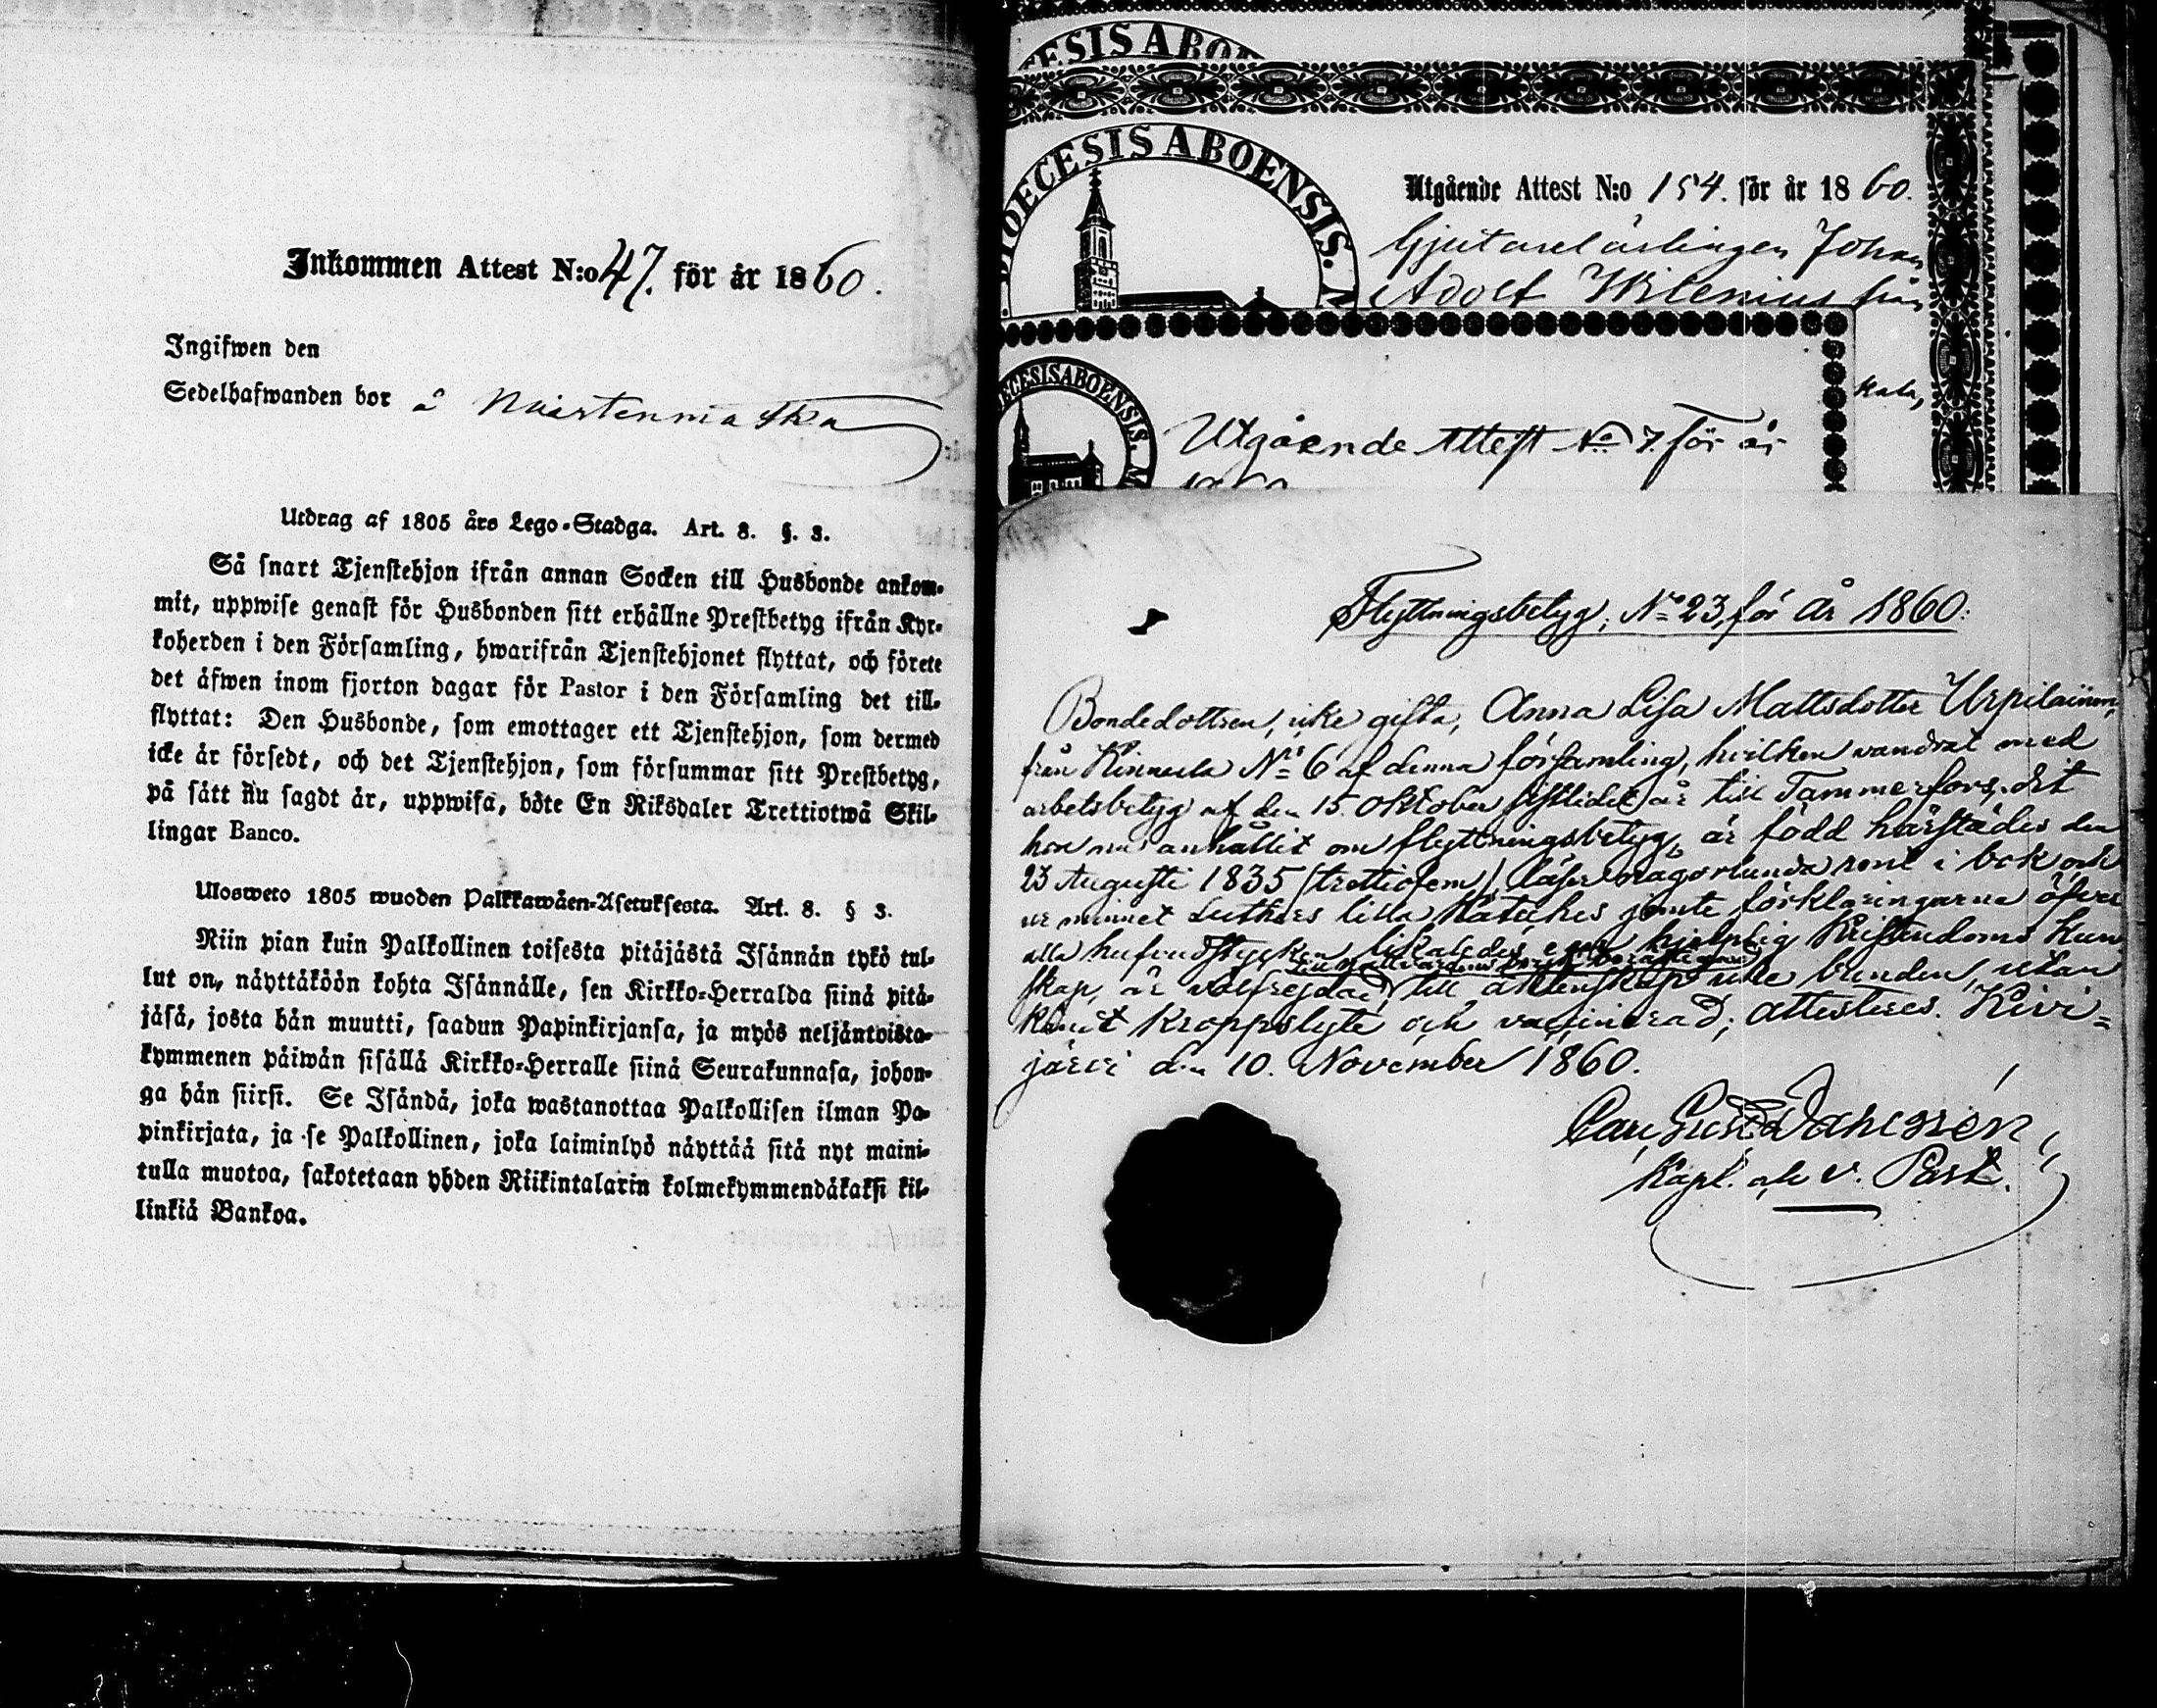 Inkommen Attest N:o 47. för år 1860.
Ingifwen den
Sedelhafwanden bor å
Utdrag af 1805 års Lego-Stadga. Art. 8. §. 3.
Så snart Tjenstehjon ifrån annan Socken till Husbonde ankom-
mit, uppwise genast för Husbonden sitt erhållne Prestbetyg ifrån Kyr-
koherden i den Församling, hwarifrån Tjenstehjonet flyttat, och förete
det äfwen inom fjorton dagar för Pastor i den Församling det till-
flyttat: Den Husbonde, som emottager ett Tjenstehjon, som dermed
icke är försedt, och det Tjenstehjon, som försummar sitt Prestbetyg,
på sätt nu sagdt är, uppwisa, böte En Riksdaler Trettiotwå Skil-
lingar Banco.
Ulosweto 1805 wuoden Palkkawäen-Asetuksesta. Art. 8. § 3.
Niin pian kuin Palkollinen toisesta pitäjästä Isännän tykö tul-
lut on, näyttäköön kohta Isännälle, sen Kirkko-Herralda siinä pitä-
jäsä, josta hän muutti, saadun Papinkirjansa, ja myös neljäntoista-
kymmenen päiwän sisällä Kirkko-Herralle siinä Seurakunnasa, johon-
ga hän siirsi. Se Isändä, joka wastanottaa Palkollisen ilman Pa-
pinkirjata, ja se Palkollinen, joka laiminlyö näyttää sitä nyt maini-
tulla muotoa, sakotetaan yhden Riikintalarin kolmekymmendäkaksi kil-
linkiä Bankoa.
ESIS ABO
DIOECESIS ABOENSIS.
Utgående Attest N:o 154. för år 1860.
Gjutarelärlingen Johan
Adolf Wilenius från
ECESIS ABOENSIS.
Utgående Attest No 7. för år
Flyttningsbetyg, No 23 för år 1860.
Bondedottren, icke gifta, Anna Lisa Mattsdotter Urpilainen,
från Kinnula No 6 af denna församling, hvilken vandrat med
arbetsbetyg af den 15 Oktober sistlidet år till Tammerfors, dit
hon nu anhållit om flyttningsbetyg, är född härstädes den
23 Augusti 1835 (trettiofem), läser någorlunda rent i bok och
ur minnet Luthers lilla Katekes jemte förklaringarna öfver
alla hufvudstycken, likaledes eger hjelplig Kristendoms kun
skap, är välfrejdad, till äktenskap icke bunden, utan
kändt kroppslyte och vaccinerad; attesteres. Kivi=
järvi den 10. November 1860.
Carl Gust. Dahlsén
Kapl. och v. Past.